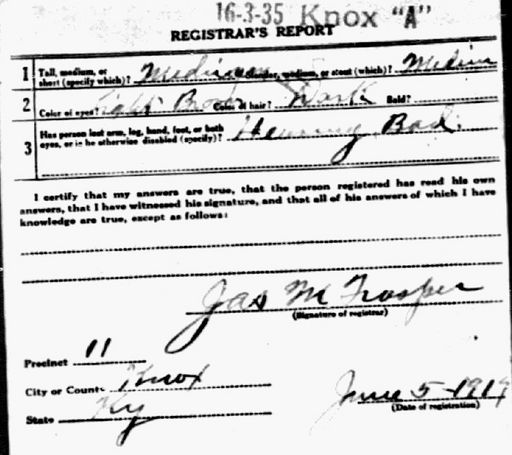 16-3-35 Knox "A"
REGISTRAR'S REPORT
1 Tall, medium, or short (specify which)? Medium Slender, medium, or stout (which)? Medium
2 Color of eyes? Light Brown Color of hair? Dark Bald?
3 Has person lost arm, leg, hand, foot, or both eyes, or is he otherwise disabled (specify)? Hearing Bad.
I certify that my answers are true, that the person registered has read his own
answers, that I have witnessed his signature, and that all of his answers of which I have
knowledge are true, except as follows:
Jas M Trosper
(Signature of registrar)
Precinct 11
City or County Knox
State Ky
June 5-1917
(Date of registration)